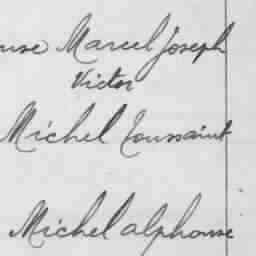 Marcel Joseph
Victor
Michel Toussaint
Michel alphonse